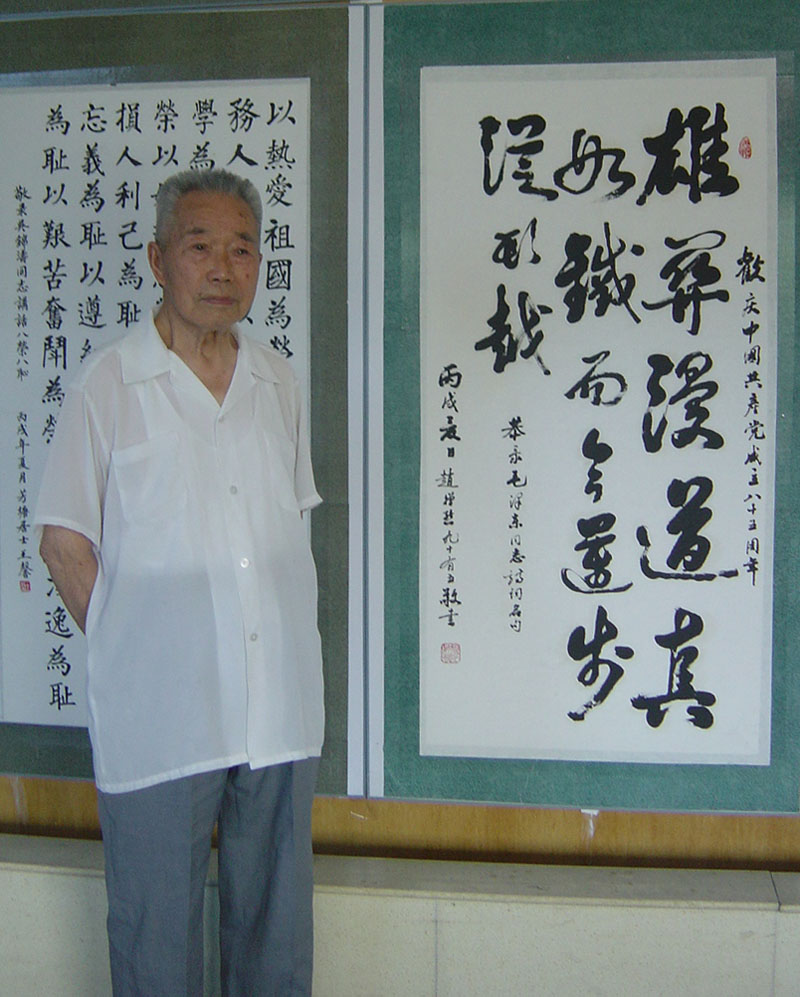 歡庆中國共產党成立八十五周年
雄關漫道真
如鐵而今邁步
從頭越
恭录毛澤东同志詩詞名句
丙戌夏日趙九十有五敬書
以熱愛祖國為榮
務人
學為
榮以
損人利己為恥
忘義為恥以遵
為恥以艱苦奮鬥為榮
逸為恥
敬录胡錦濤同志講話八榮八恥
丙戌年夏月芳居士王馨